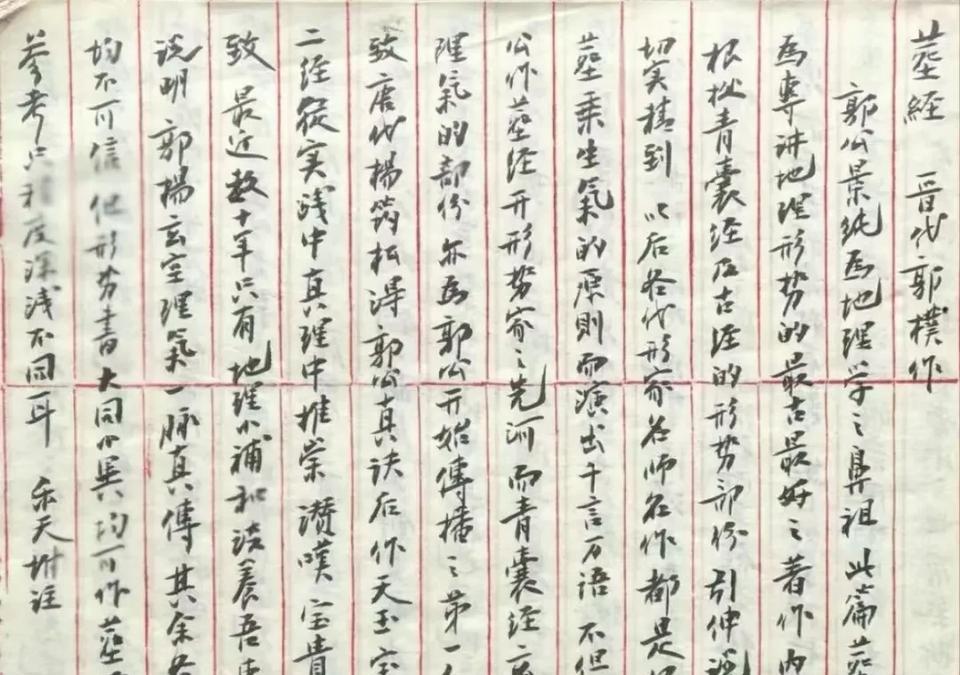 葬经 晋代郭樸作
郭公景纯為地理学之鼻祖 此篇葬
為專讲地理形势的最古最好之著作 内
根据青囊经及古经的形势部份 引伸
切实精到 以后各代形家名师名作 都是
葬乘生氣的原則而演出千言万语 不但
公作葬经开形势家之先河 而青囊经
理氣的部份 亦為郭公开始傳播之第一
致唐代楊筠松得郭公真诀后作天玉宝
二经從实践中真理中推崇讚嘆 宝貴
致 最近数十年只有地理小補和 吾
说明 郭楊玄空理氣一脉真傳 其余各
均不可信 但形势書大同小異 均可作葬
参考 只程度深浅不同耳 乐天附注